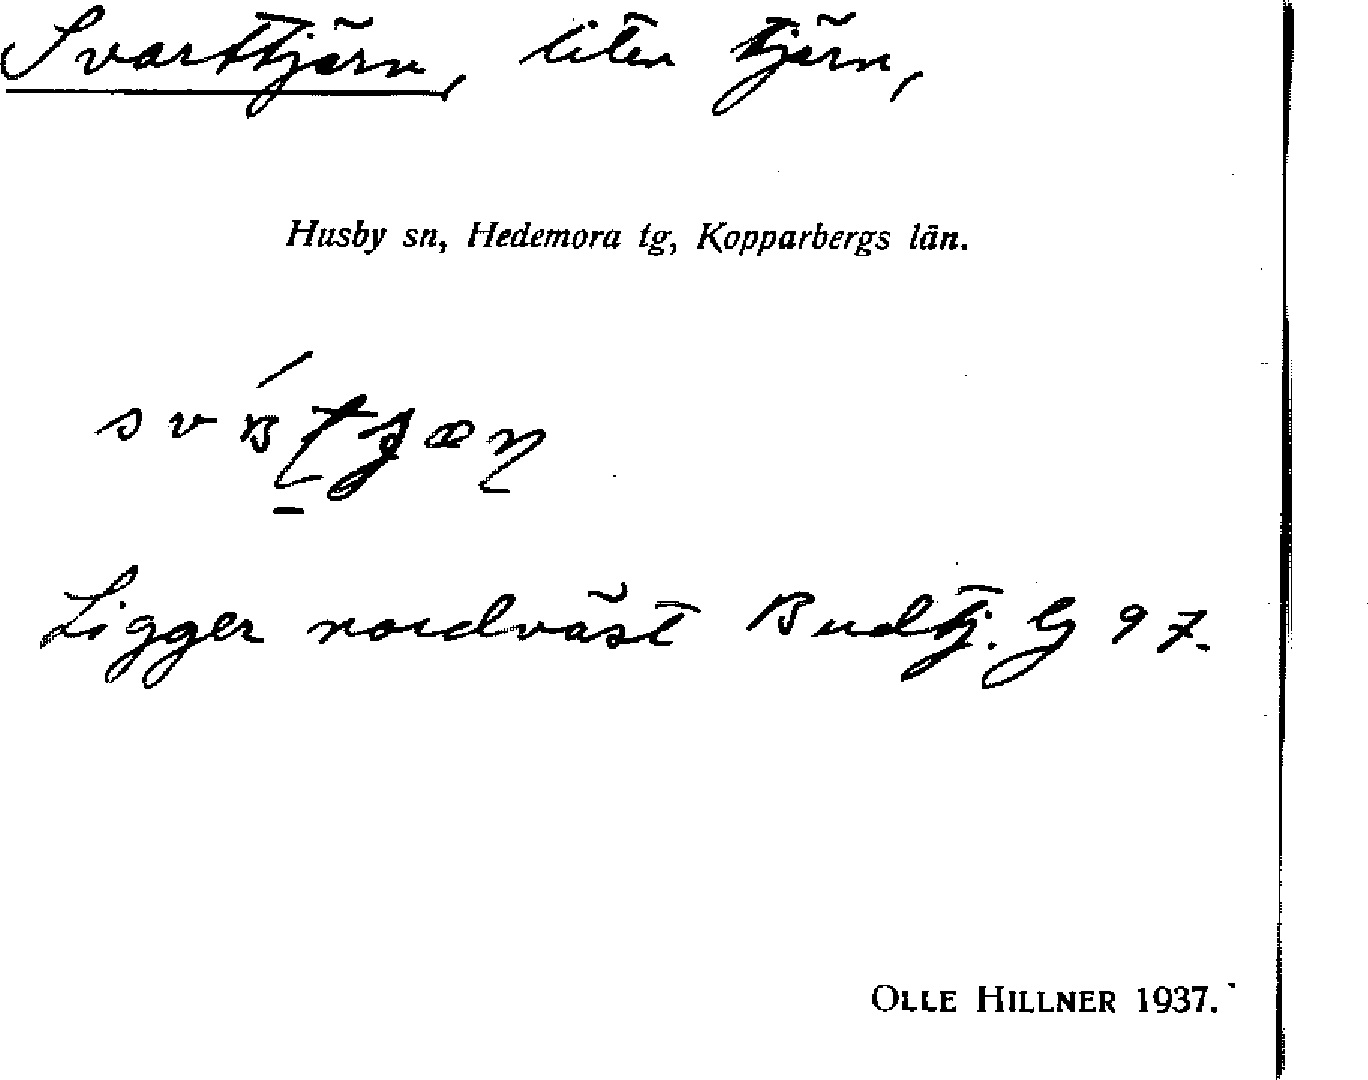 Svarttjärn, liten tjärn,
Husby sn, Hedemora tg, Kopparbergs län.
Ligger nordväst Budtj. G 97.
OLLE HILLNER 1937.